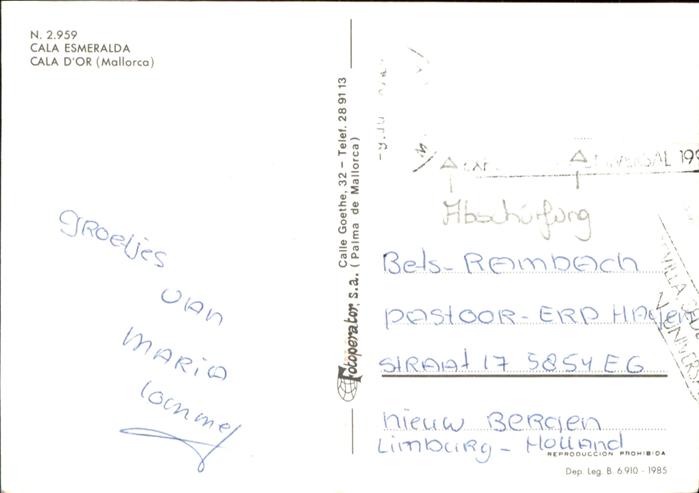 N. 2.959
CALA ESMERALDA
CALA D'OR (Mallorca)
GROETJES
VAN
MARIA
Fotoperator s.a. Calle Goethe, 32 - Telef. 28 91 13
(Palma de Mallorca)
Abschürfung
Bets-Rambach
PASTOOR-ERP
STRAAT 17 5854 EG
NIEUW BERGEN
LIMBURG-HOLLAND
REPRODUCCION PROHIBIDA
Dep. Leg. B. 6.910 - 1985